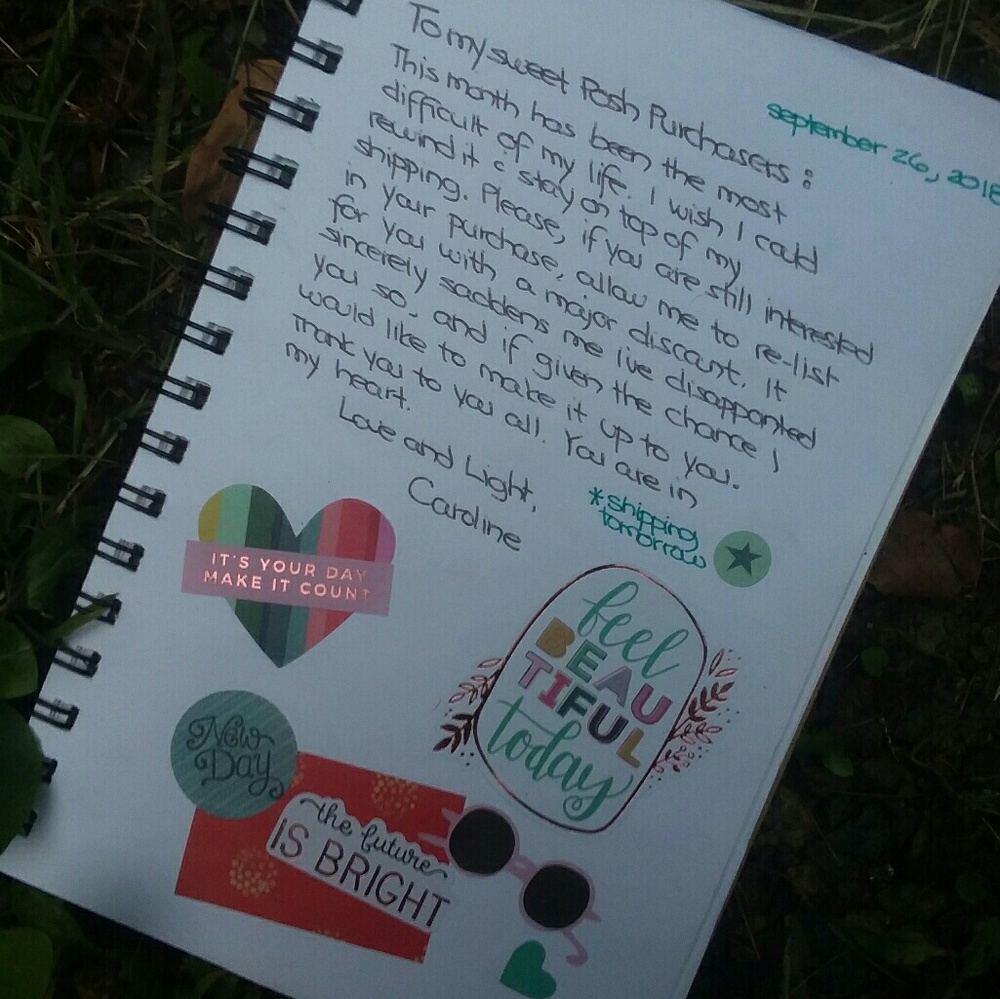 To my sweet Posh Purchasers:
september 26, 2018
This month has been the most
difficult of my life. I wish I could
rewind it & stay on top of my
shipping. Please, if you are still interested
in your purchase, allow me to re-list
for you with a major discount. It
sincerely saddens me I've disappointed
you so, and if given the chance I
would like to make it up to you.
Thank you to you all. You are in
my heart.
Love and Light,
Caroline
*shipping
tomorrow
IT'S YOUR DAY
MAKE IT COUNT
feel
BEAU
TIFUL
today
New
Day
the future
IS BRIGHT